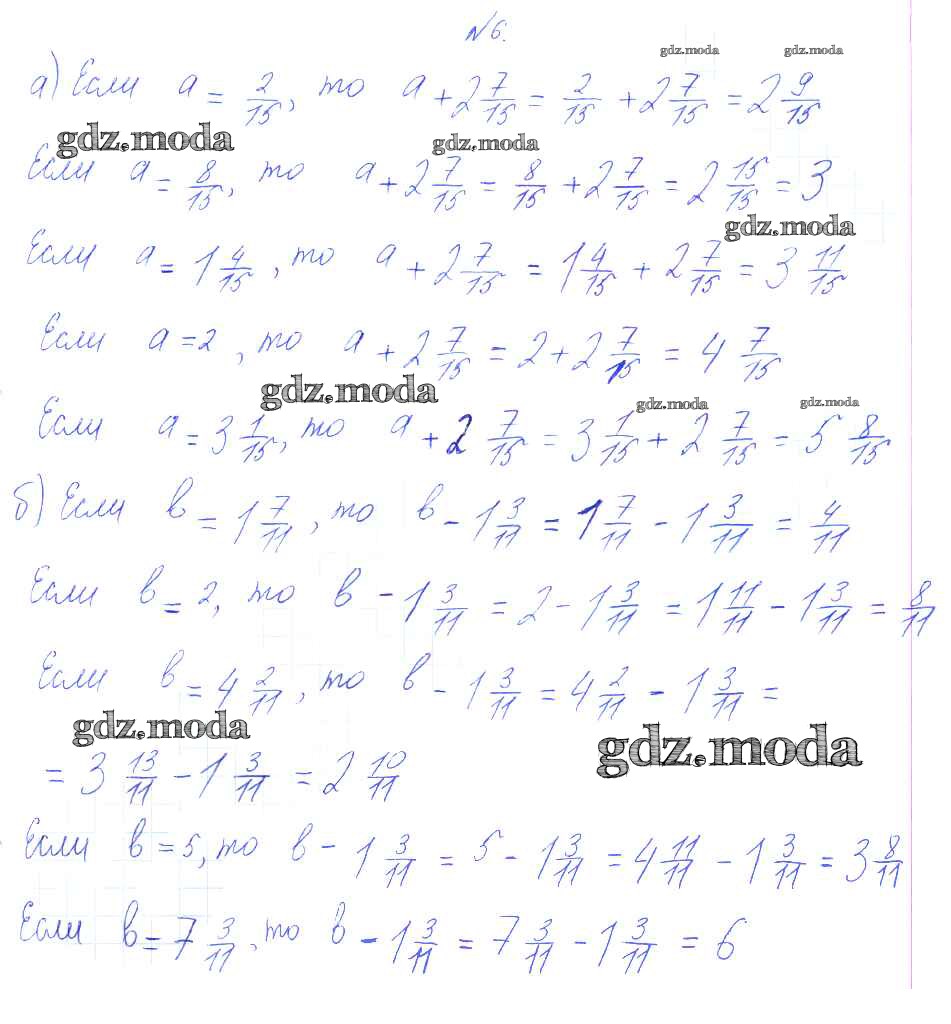 №6.
gdz.moda gdz.moda
а) Если a = 2/15, то a + 2 7/15 = 2/15 + 2 7/15 = 2 9/15
gdz.moda gdz.moda
Если a = 8/15, то a + 2 7/15 = 8/15 + 2 7/15 = 2 15/15 = 3
gdz.moda
Если a = 1 4/15, то a + 2 7/15 = 1 4/15 + 2 7/15 = 3 11/15
Если a = 2, то a + 2 7/15 = 2 + 2 7/15 = 4 7/15
gdz.moda gdz.moda gdz.moda
Если a = 3 1/15, то a + 2 7/15 = 3 1/15 + 2 7/15 = 5 8/15
б) Если в = 1 7/11, то в - 1 3/11 = 1 7/11 - 1 3/11 = 4/11
Если в = 2, то в - 1 3/11 = 2 - 1 3/11 = 1 11/11 - 1 3/11 = 8/11
Если в = 4 2/11, то в - 1 3/11 = 4 2/11 - 1 3/11 =
gdz.moda gdz.moda
= 3 13/11 - 1 3/11 = 2 10/11
Если в = 5, то в - 1 3/11 = 5 - 1 3/11 = 4 11/11 - 1 3/11 = 3 8/11
Если в = 7 3/11, то в - 1 3/11 = 7 3/11 - 1 3/11 = 6